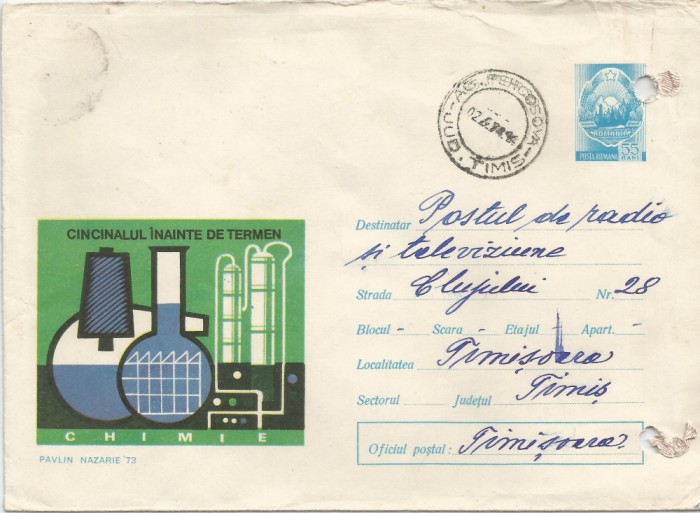 AG. PERCOSOVA
JUD. TIMIS
ROMÂNIA
POSTA ROMANA
55
BANI
CINCINALUL ÎNAINTE DE TERMEN
CHIMIE
PAVLIN NAZARIE '73
Destinatar Postul de radio
și televiziune
Strada Clujului Nr. 28
Blocul - Scara - Etajul - Apart. -
Localitatea Timișoara
Sectorul Județul Timiș
Oficiul poștal: Timișoara.